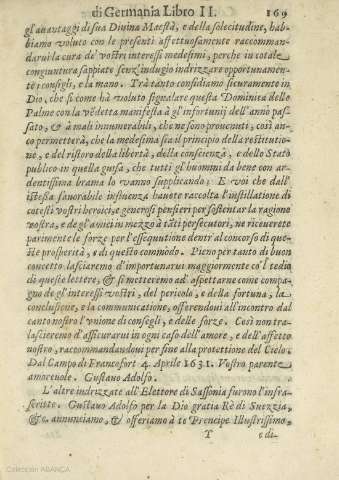 di Germania Libro II. 169
gl'auantaggi di sua Diuina Maestà, e della solecitudine, hab-
biamo voluto con le presenti affettuosamente raccomman-
darui la cura de' vostri interessi medesimi, perche in totale
congiuntura sappiate senz'indugio indrizzare opportunamen-
te i consigli, e la mano. Trà tanto confidiamo sicuramente in
Dio, che si come hà voluto signalare questa Dominica delle
Palme con la vedetta manifesta à gl'infortunij dell'anno pas
sato, & à mali innumerabili, che ne sono prouenuti, così an-
co permetterà, che la medesima sia il principio della restitutio-
ne, e del ristoro della libertà, della conscienza, e dello Stato
publico in quella guisa, che tutti gl'huomini da bene con ar-
dentissima brama lo vanno supplicando: E voi che dall'
istessa fauorabile influenza hauete raccolta l'instillatione di
cotesti vostri heroici, e generosi pensieri per sostentar la ragione
vostra, e de gl'amici in mezzo à tãti persecutori, ne riceuerete
parimente le forze per l'essequutione dentr'al concorso di que-
ste prosperità, e di questo commodo. Pieno per tanto di buon
concetto lascieremo d'importunarui maggiormente co'l tedio
di queste lettere, & si metteremo ad'ospettarne come compa-
gno de gl'interessi vostri, del pericolo, e della fortuna, la
conclusione, e la communicatione, offerendoui all'incontro dal
canto nostro l'vnione di consegli, e delle forze. Così non tra-
lascieremo d'assicurarui in ogni caso dell'amore, e dell'affetto
nostro, raccommandandoui per fine alla protettione del Cielo.
Dal Campo di Francofort 4. Aprile 1631. Vostro parente
amoreuole. Gustauo Adolfo.
L'altre indrizzate all'Elettore di Sassonia furono l'infra-
scritte. Gustauo Adolfo per la Dio gratia Rè di Suezzia,
&c. annunciamo, & offeriamo à te Prencipe Illustrissimo
T edi-
Colección ABANCA